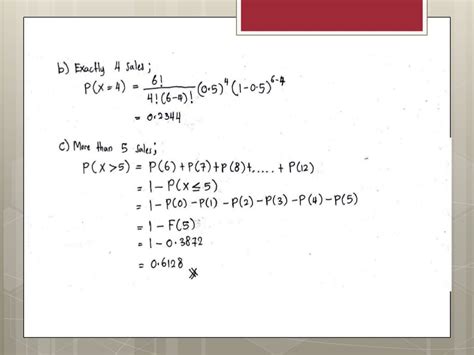 b) Exactly 4 sales;
P(X=4) = 6!/4!(6-4)! (0.5)^4 (1-0.5)^6-4
= 0.2344
c) More than 5 sales;
P(X>5) = P(6)+P(7)+P(8)+,....+ P(12)
= 1-P(X≤5)
= 1-P(0)-P(1)-P(2)-P(3)-P(4)-P(5)
= 1-F(5)
= 1-0.3872
= 0.6128